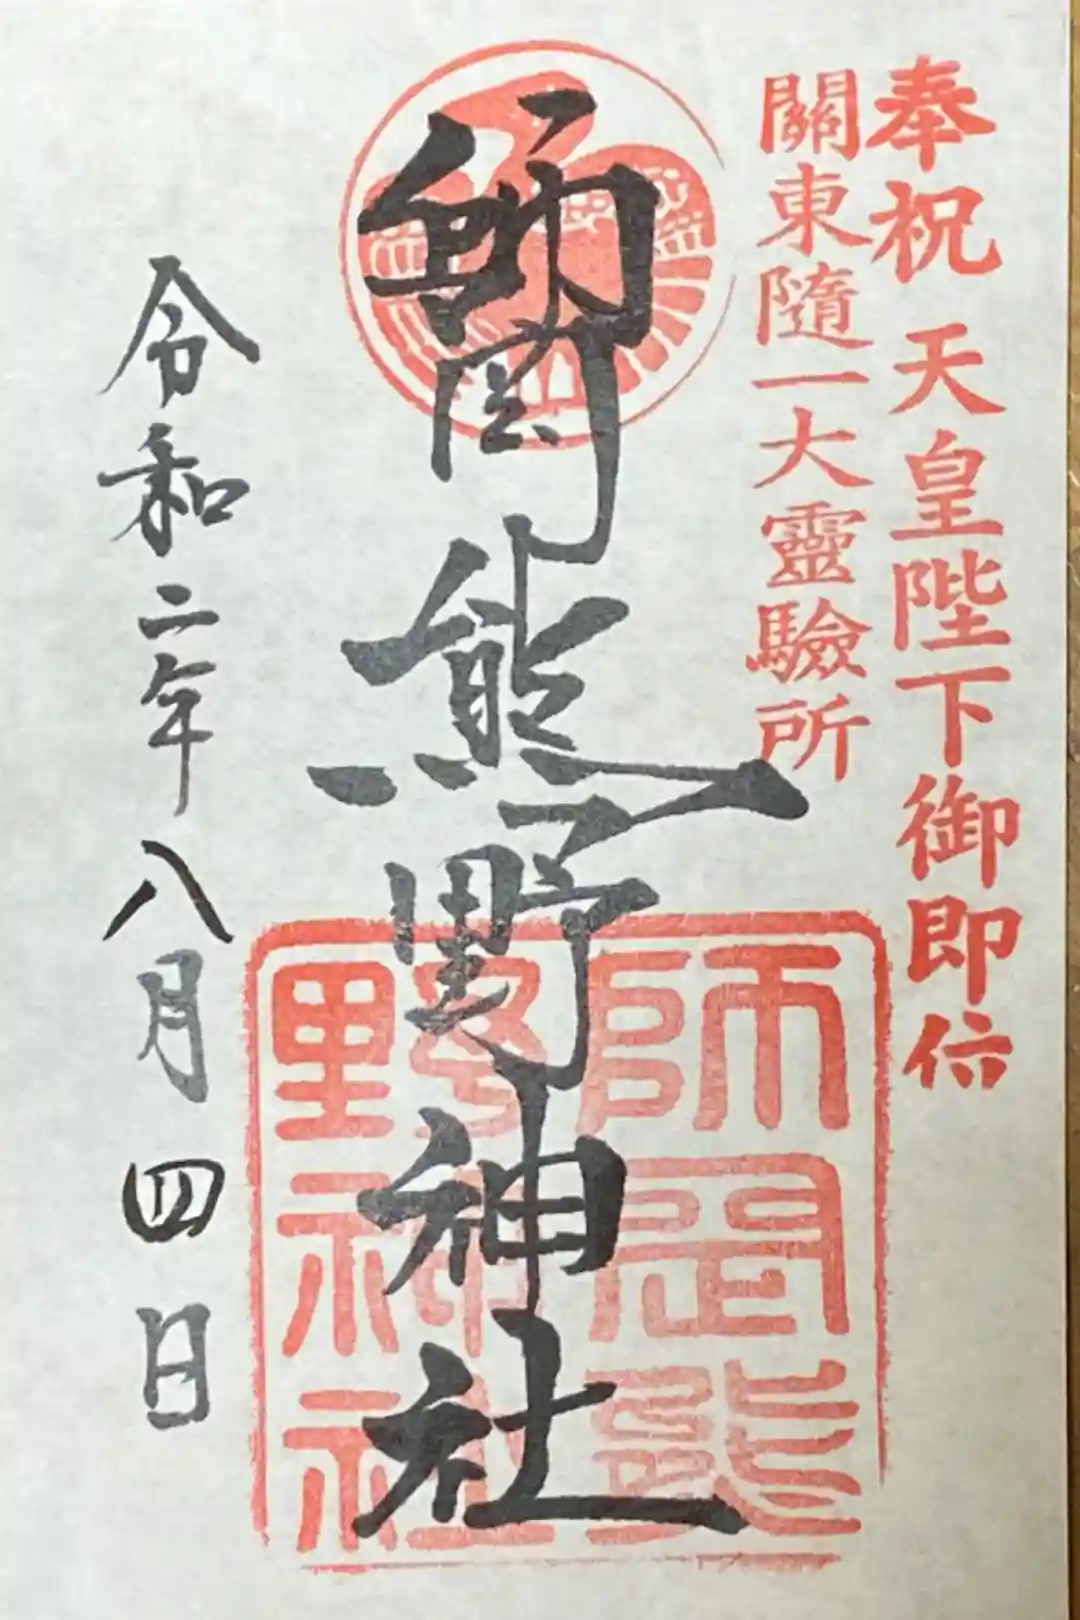 奉祝 天皇陛下御即位
關東随一大靈驗所
師岡熊野神社
師岡熊
野神社
令和二年八月四日